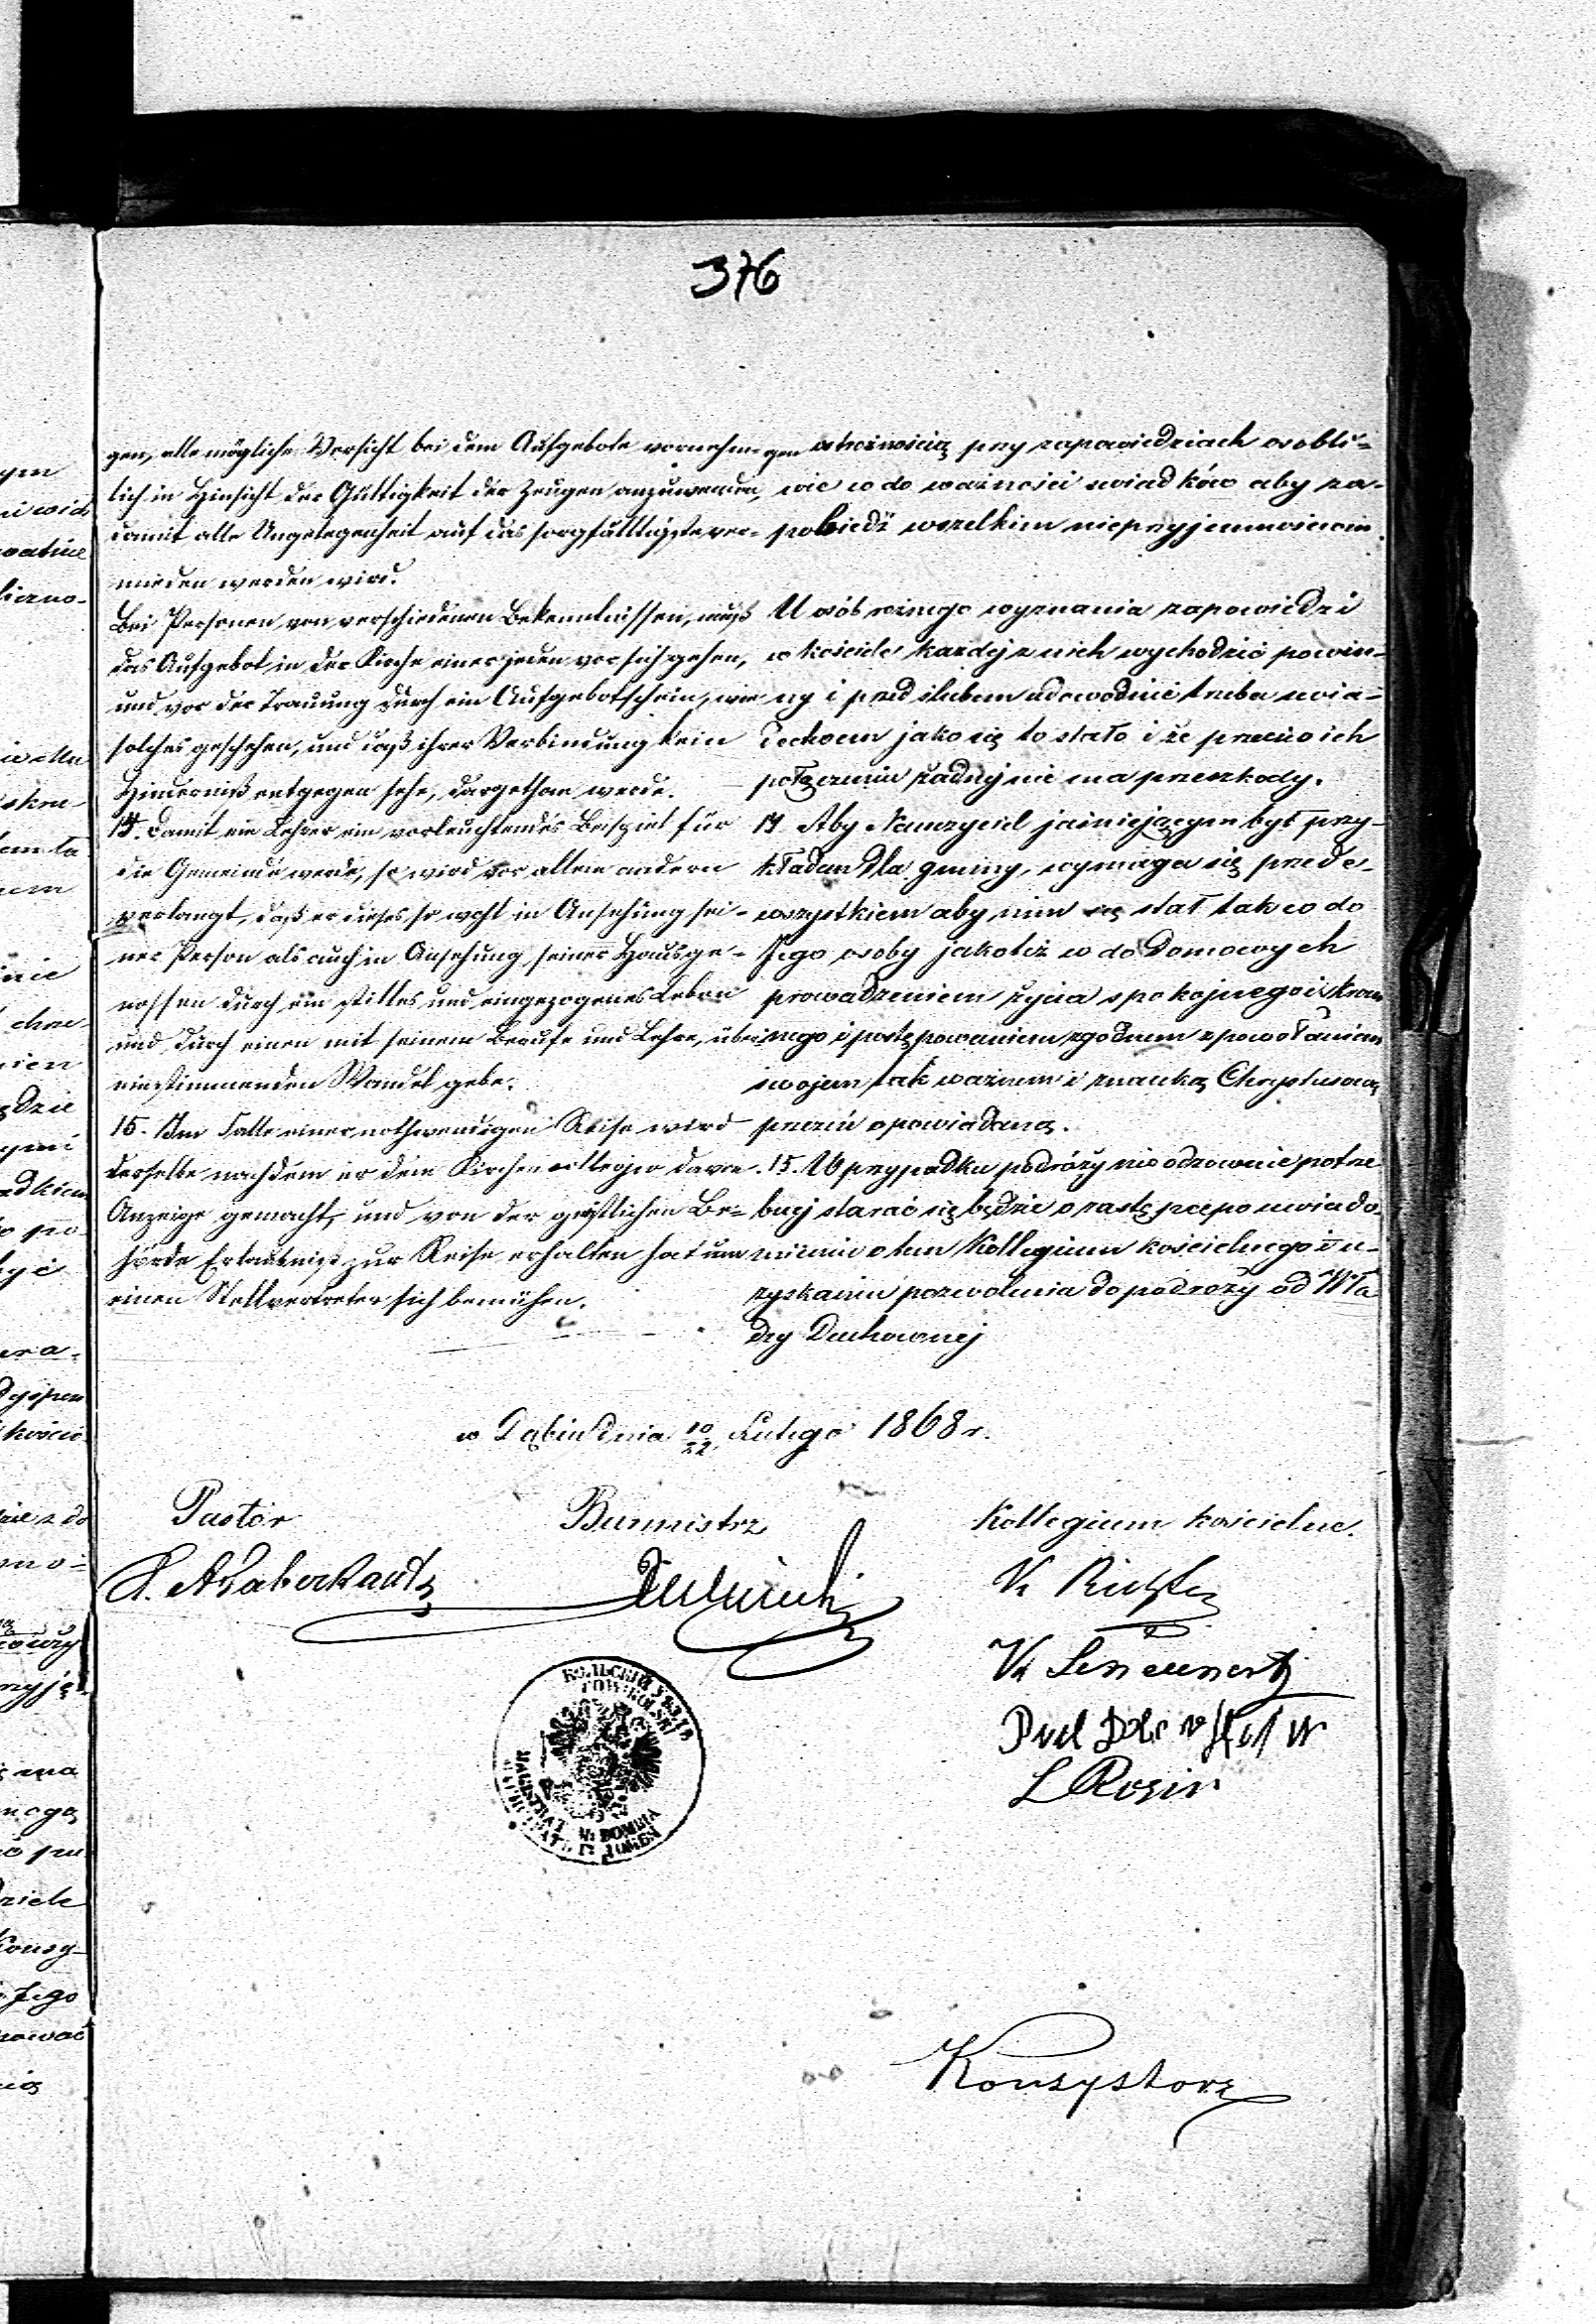 376
gen, alle mögliche Vorsicht bei dem Aufgebote vornehm-
lich in Hinsicht der Gültigkeit der Zeugen anzuwenden,
damit alle Ungelegenheit auf das sorgfälltigste ver-
mieden werden wird.
Bei Personen von verschiedenen Bekenntnissen, muß
das Aufgebot in der Kirche einer jeden vor sich gehen,
und vor der Trauung durch ein Aufgebotschein, wie
solches geschehen, und daß ihrer Verbindung kein
Hinderniß entgegen sehe, dargethan werde.
14. Damit ein Lehrer ein vorleuchtendes Beispiel für
die Gemeinde werde, so wird vor allem andern
verlangt, daß er dieses so wohl in Ansehung sei-
ner Person als auch in Ansehung seiner Hausge-
nossen durch ein stilles und eingezogenes Leben
und durch einen mit seinem Berufe und Lehre, über-
einstimmenden Wandel gebe.
15. Im Falle einer nothwendigen Reise wird
derselbe nachdem er dem Kirchencollegio davon
Anzeige gemacht, und von der geistlichen Be-
hörde Erlaubniß zur Reise erhalten hat um
einen Stellvertreter sich bemühen.
ostrożnością przy zapowiedziach osobli-
wie co do ważności świadków aby za-
pobiedź wszelkim nieprzyjemnościom.
U osób różnego wyznania zapowiedzi
w kościele każdej z nich wychodzić powin-
ny i przed ślubem udowodnić trzeba świa-
dectwem jako się to stało i że przeciw ich
połączeniu żadnej nie ma przeszkody.
14. Aby Nauczyciel jaśniejącym był przy-
kładem dla gminy, wymaga się przede-
wszystkiem aby nim się stał tak co do
Jego osoby jakoteż co do Domowych
prowadzeniem życia spokojnego i skrom
nego i postępowaniem zgodnem z powołaniem
swojem tak ważnem i z nauką Chrystusową
przezeń opowiadaną.
15. W przypadku podróży nieodzownie potrze
bnej starać się będzie o zastępcę po uwiado-
mieniu o tem Kollegium kościelnego i u-
zyskaniu pozwolenia do podróży od Wła
dzy Duchownej
w Dąbiu dnia 10/22 Lutego 1868 r.
Pastor
Burmistrz
Kollegium kościelne.
L Rosin
MAGISTRAT M: DOMBIA
Konsystorz